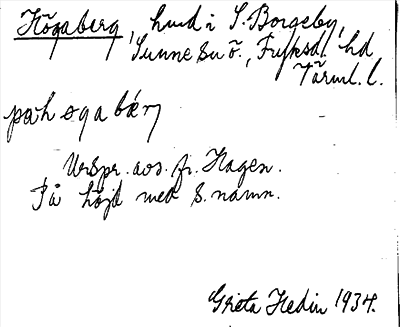 Högaberg, hmd i S. Borgeby,
Sunne sn ö., Fryksd. hd
Värml. l.
pɒh øga bærj
Urspr. avs. fr. Hagen.
På höjd med s. namn.
Greta Hedin 1934.